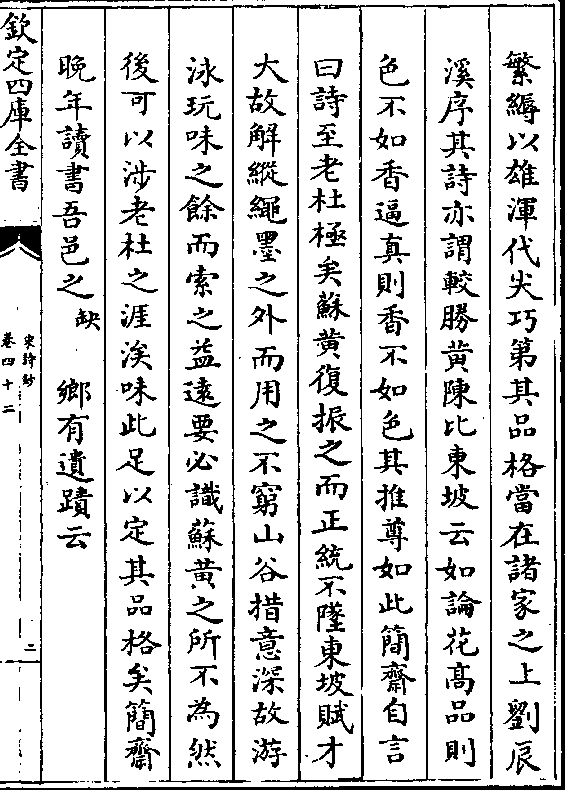 繁縟以雄渾代尖巧第其品格當在諸家之上劉辰
溪序其詩亦謂較勝黄陳比東坡云如論花高品則
色不如香逼真則香不如色其推尊如此簡齋自言
曰詩至老杜極矣蘇黄復振之而正統不墜東坡賦才
大故解縱繩墨之外而用之不窮山谷措意深故游
泳玩味之餘而索之益遠要必識蘇黄之所不為然
後可以涉老杜之涯涘味此足以定其品格矣簡齋
晚年讀書吾邑之缺　鄉有遺蹟云
欽定四庫全書
宋詩鈔
卷四十二
二